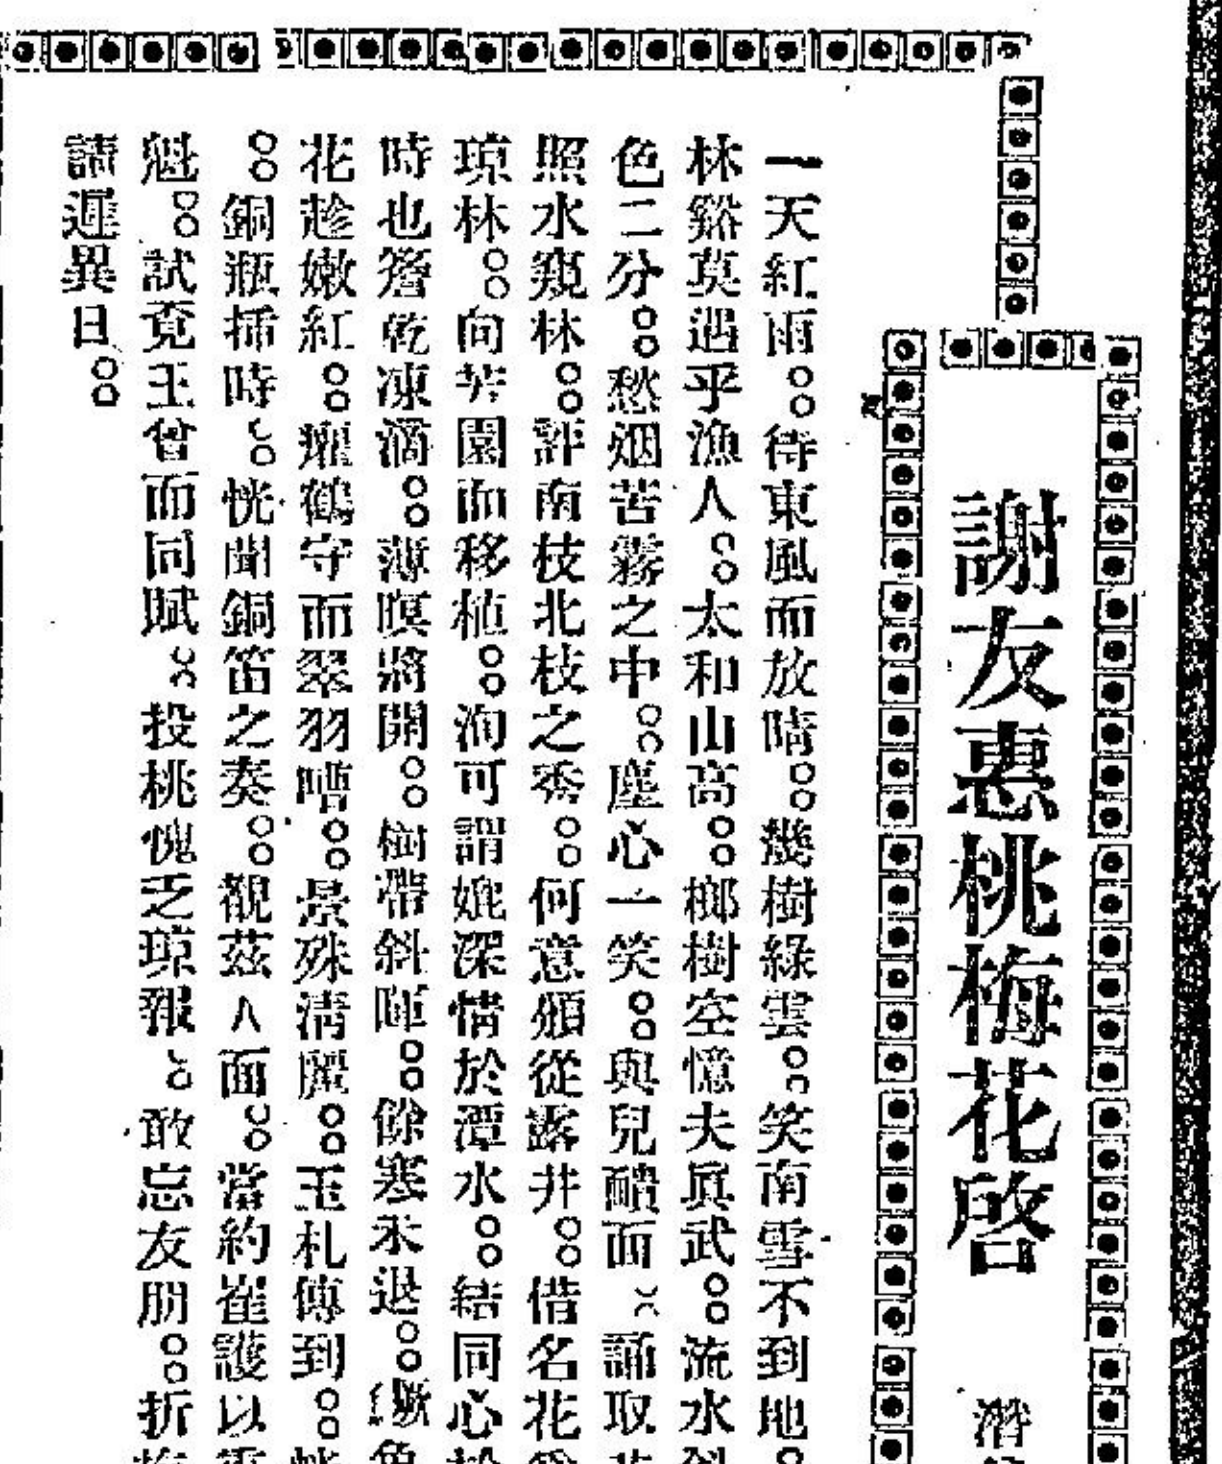 謝友惠桃梅花啓 潛
一天紅雨。待東風而放晴。幾樹綠雲。笑南雪不到地。
林谿莫遇乎漁人。太和山高。榔樹空憶夫眞武。流水
色二分。愁烟苦霧之中。塵心一笑。與兒靧面。誦取
照水窺林。評南枝北枝之秀。何意頒從露井。借名花
瓊林。向芳園而移植。洵可謂媲深情於潭水。結同心
時也簷乾凍滴。薄暝將開。樹帶斜暉。餘寒未退。
花趁嫩紅。癯鶴守而翠羽嘈。景殊淸麗。玉札傳到。
。銅瓶插時。恍聞銅笛之奏。觀茲人面。當約崔護以
魁。試竟王曾而同賦。投桃愧乏瓊報。敢忘友朋。折
請遲異日。